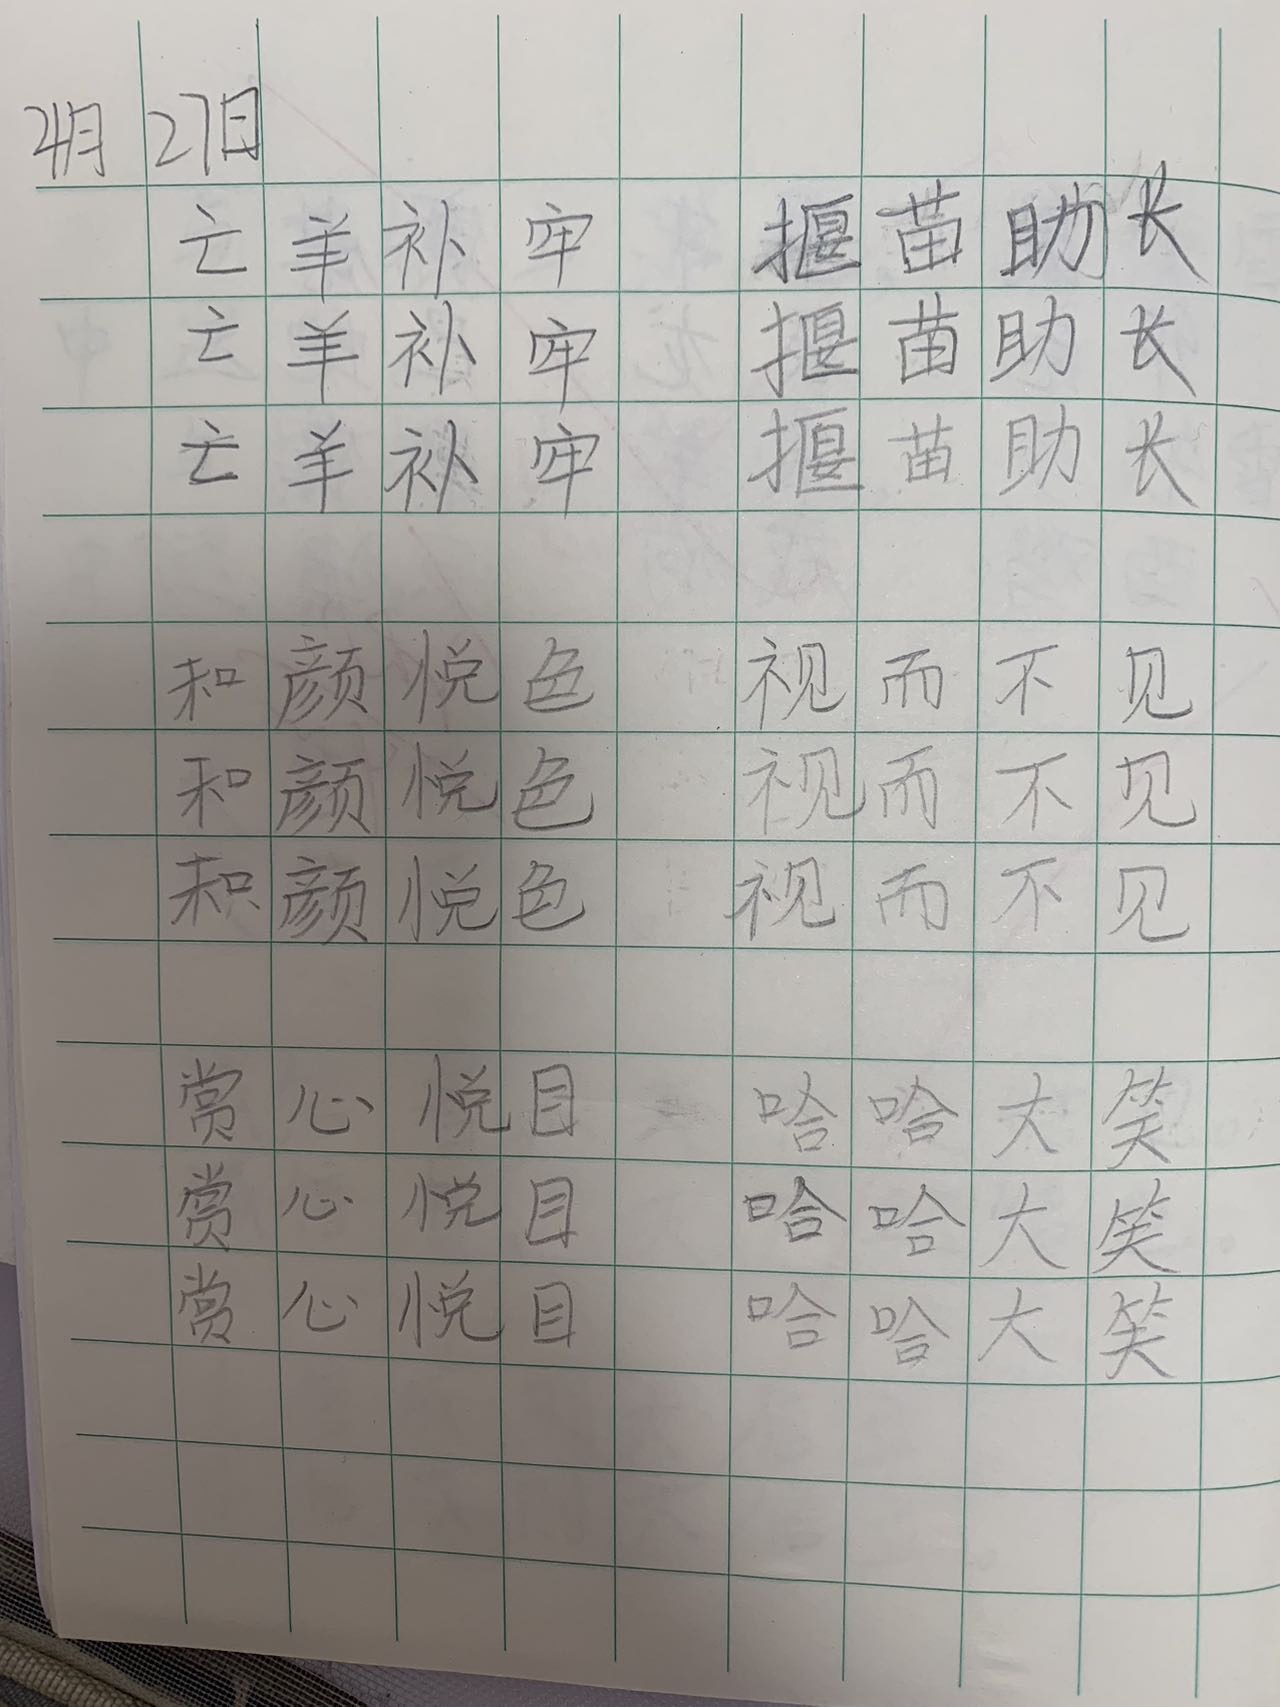 4月 27日
亡羊补牢 揠苗助长
亡羊补牢 揠苗助长
亡羊补牢 揠苗助长
和颜悦色 视而不见
和颜悦色 视而不见
和颜悦色 视而不见
赏心悦目 哈哈大笑
赏心悦目 哈哈大笑
赏心悦目 哈哈大笑